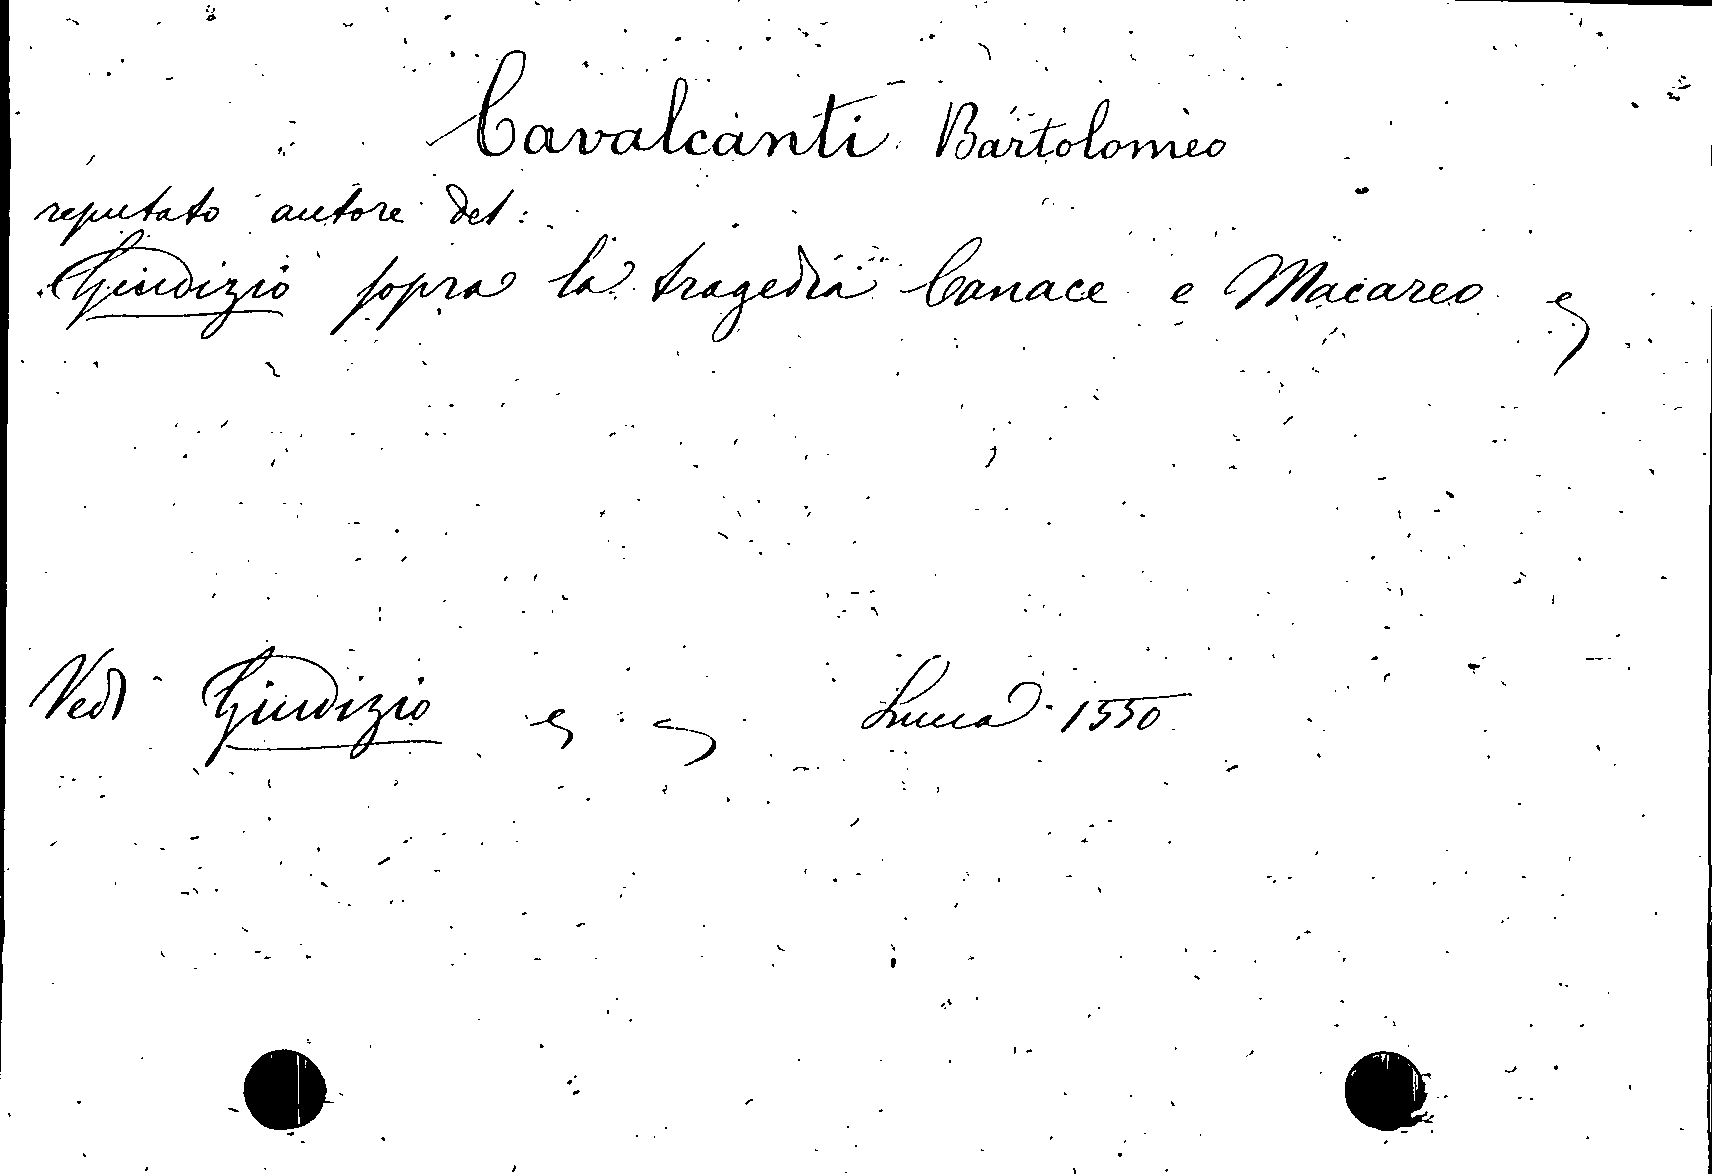 Cavalcanti Bartolomeo
reputato autore del:
Giudizio sopra la tragedia Canace e Macareo e
Vedi Giudizio e Lucca 1550